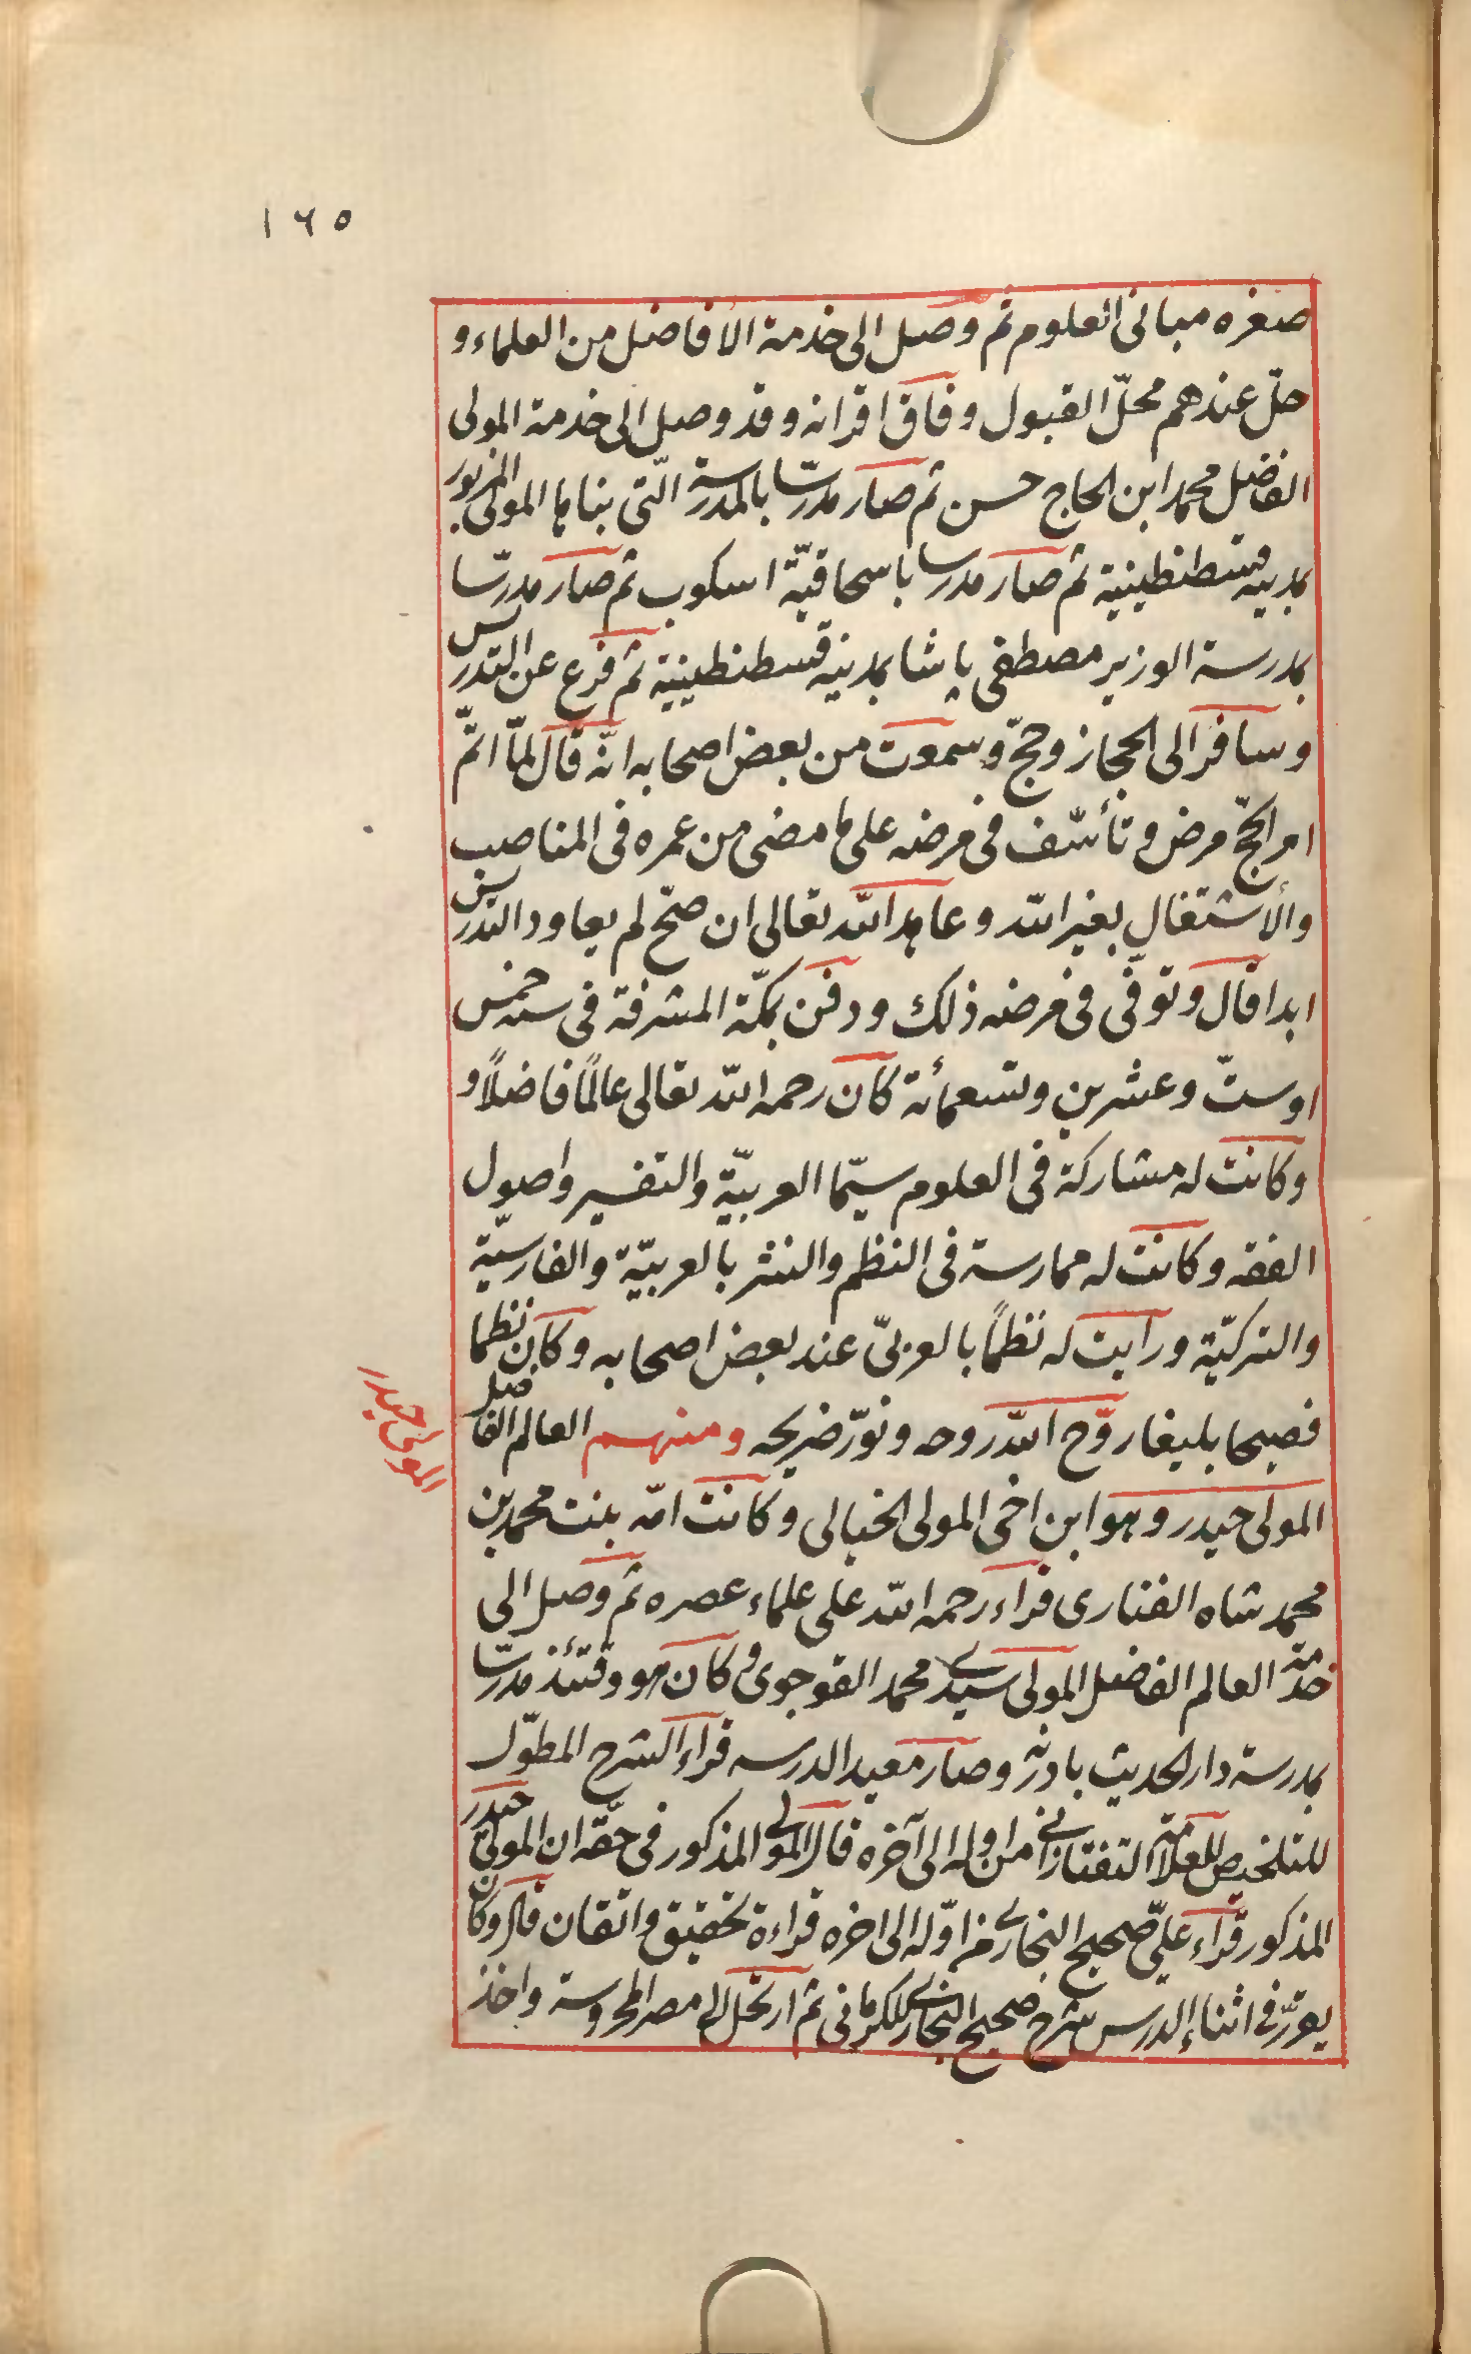 ١٦٥
صغره مبانى العلوم ثم وصل الى خدمة الافاضل من العلماء و
حلّ عندهم محلّ القبول وفاق اقرانه وقد وصل الى خدمة المولى
الفاضل محمد ابن الحاج حسن ثم صار مدرسا بالمدرسة الّتى بناها المولى المزبور
بمدينة قسطنطينية ثم صار مدرسا باسحاقيّة اسكوب ثم صار مدرّسا
بمدرسة الوزير مصطفى پاشا بمدينه قسطنطينية ثم فرغ عن التدريس
وسافر الى الحجاز وحجّ وسمعت من بعض اصحابه انّه قال لمّا اتمّ
امر الحجّ مرض وتأسّف فى مرضه على ما مضى من عمره فى المناصب
والأشتغال بغير اللّه وعاهد اللّه تعالى ان صحّ لم يعاود التدريس
ابدا قال وتوفّى فى مرضه ذلك ودفن بمكّة المشرفة فى سنه خمس
اوستّ وعشرين وتسعمأئة كان رحمه اللّه تعالى عالمًا فاضلًا و
وكانت له مشاركة فى العلوم سيّما العربيّة والتفسير واصول
الفقه وكانت له ممارسة فى النظم والنثر بالعربيّة والفارسيّة
والتركيّة ورايت له نظمًا بالعربىّ عند بعض اصحابه وكان نظما
فصيحا بليغا روّح اللّه روحه ونوّر ضريحه ومنهم العالم الفاضل
المولى حيدر
المولى حيدر وهو ابن اخى المولى الخيالى وكانت امّه بنت محمد بن
محمد شاه الفنارى قراء رحمه اللّه على علماء عصره ثم وصل الى
خدمة العالم الفاضل المولى سيدى محمد القوجوى وكان هو وقتئذ مدرّسا
بمدرسة دار الحديث بادرنه وصار معيد الدرسه قراء الشرح المطوّل
للتلخيص للعلّامة التفتازانى من اوله الى آخره قال المولى المذكور فى حقّه ان المولى حيدر
المذكور قراء علىّ صحيح البخارى من اوّله الى اخره قراءة تحقيق واتقان قال وكان
يقرّر فى اثناء الدرس شرح صحيح البخارى للكرمانى ثم ارتحل الى مصر المحروسة واخذ